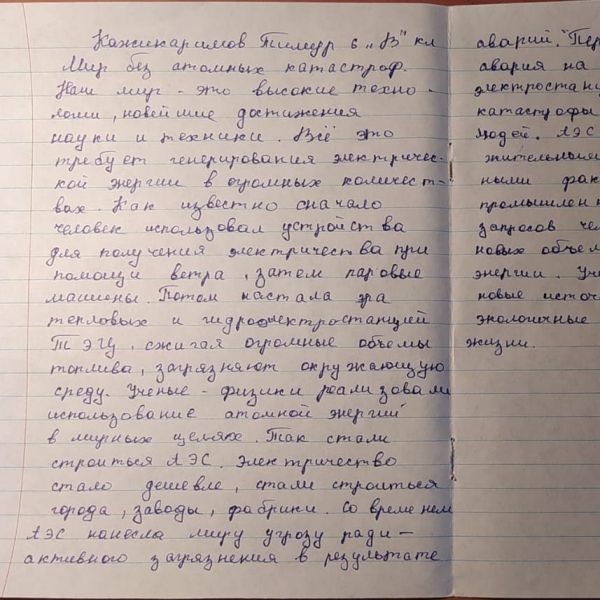 Кажикаримов Тимур 6 „В" кл
Мир без атомных катастроф.
Наш мир - это высокие техно-
логии, новейшие достижения
науки и техники. Всё это
требует генерирования электричес-
кой энергии в огромных количест-
вах. Как известно сначало
человек использовал устройства
для получения электричества при
помощи ветра, затем паровые
машины. Потом настала эра
тепловых и гидроэлектростанций
ТЭГУ, сжигая огромные объёмы
топлива, загрязняют окружающую
среду. Ученые - физики реализовали
использование атомной энергий
в мирных целях. Так стали
строиться АЭС. Электричество
стало дешевле, стали строиться
города, заводы, фабрики. Со временем
АЭС нанесла миру угрозу ради-
активного загрязнения в результате
аварий. Пер
авария на
электростан
катастрофы
людей. АЭС
жительными
ными фак
промышлен
запросов че
новых объем
энергии. Уче
новые источ
экологичные
жизни.